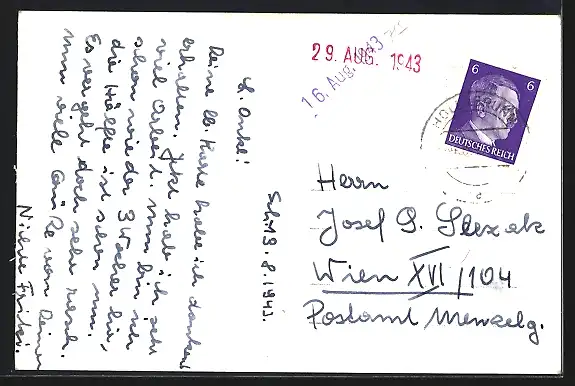 29. AUG. 1943
16. Aug. 1943
6 6
DEUTSCHES REICH
Sch. 13.8.1943.
L. Onkel!
Deine lb. Karte habe ich dankend
erhalten. Jetzt hab ich sehr
viel Arbeit. Nun bin ich
schon wieder 3 Wochen hier,
die Hälfte ist schon um.
Es vergeht doch sehr rasch.
Nun viele Grüße von Deiner
Nichte
Herrn
Josef S. Slezak
Wien XVI/104
Postamt Menzelg.